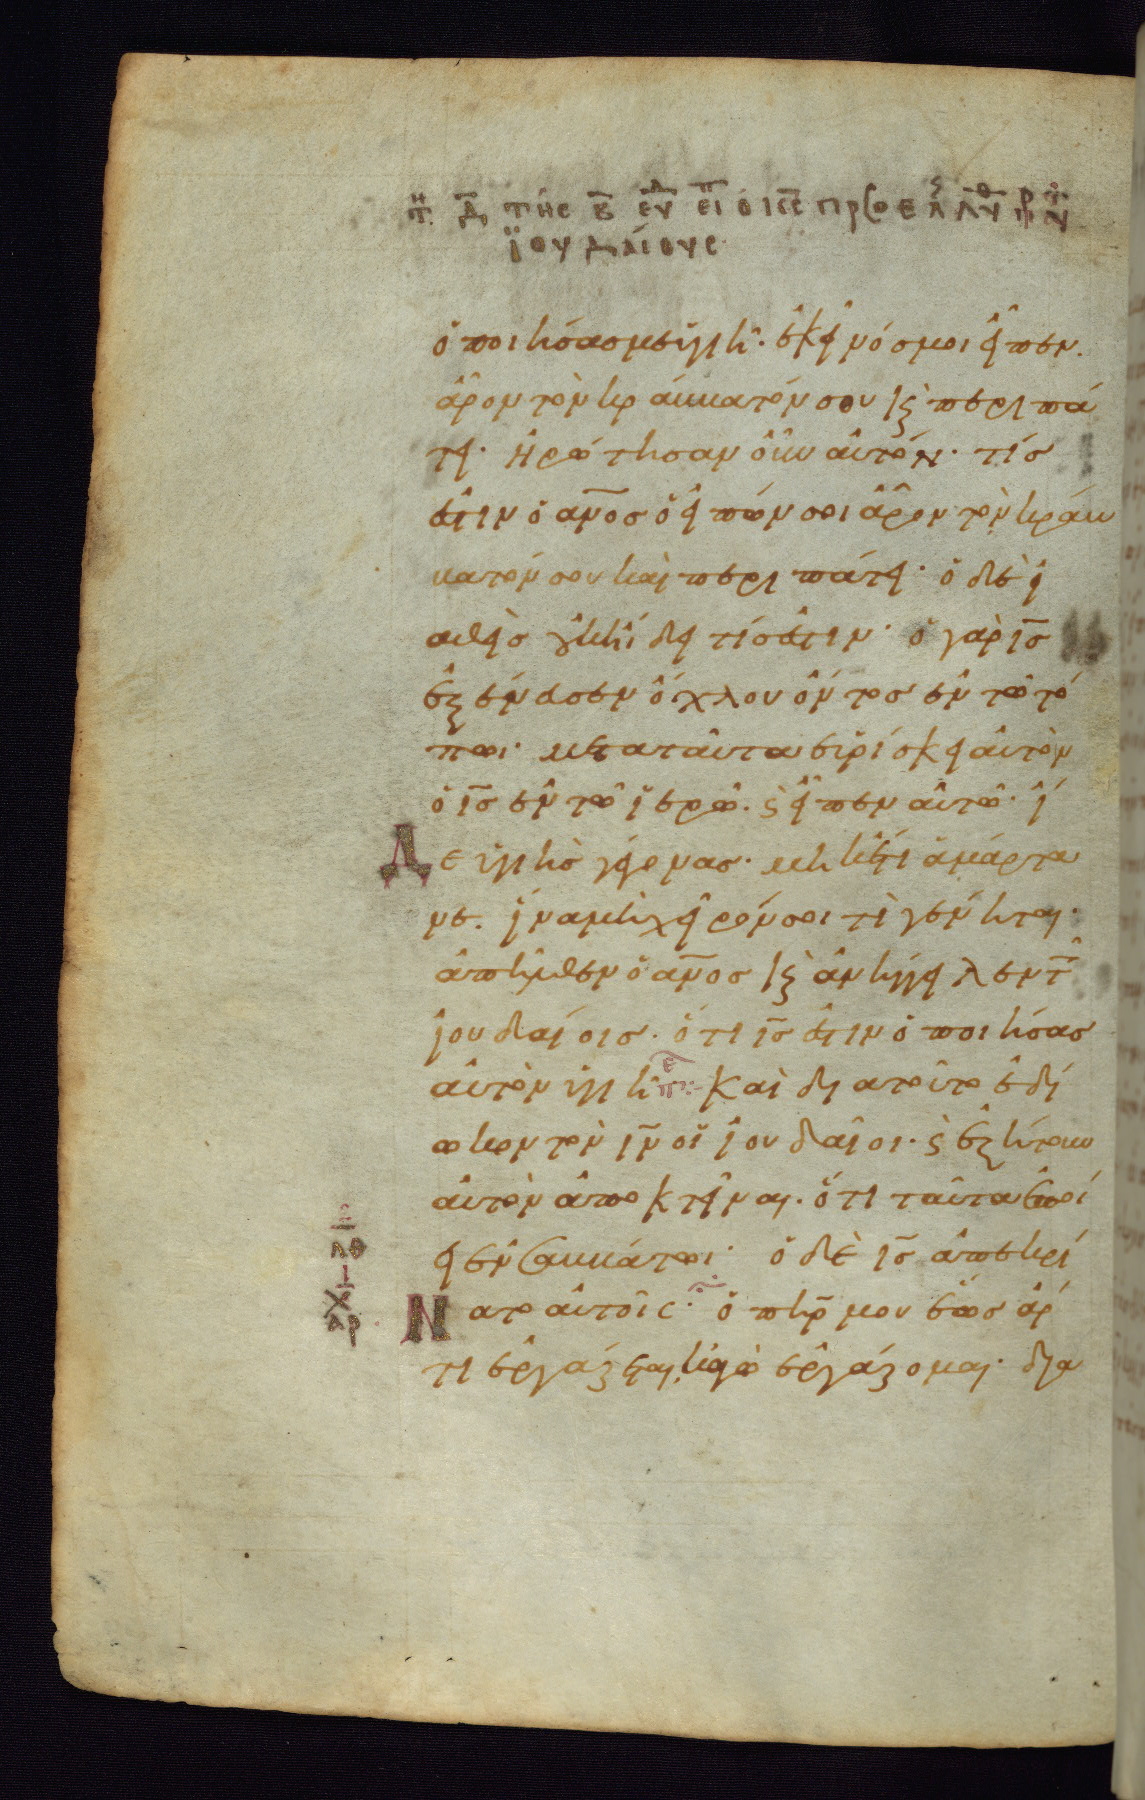 τῆς β̅ εἶπ̅ ὁ ι̅ς̅ προς
ἰουδαίους
ὁ ποιήσας με ὑγιῆ. ἐκεῖνός μοι εἶπεν.
ἆρον τὸν κράββατόν σου ϗ περιπά
τει. Ἠρώτησαν οὖν αὐτόν. τίς
ἐστιν ὁ α̅ν̅ο̅ς ὁ εἰπών σοι ἆρον τὸν κράβ
βατόν σου καὶ περιπάτει. ὁ δὲ ἰ
αθεὶς οὐκ ἤδει τίς ἐστιν. ὁ γὰρ ι̅ς̅
ἐξένευσεν ὄχλου ὄντος ἐν τῶ τό
πωι. μετα ταῦτα εὑρίσκει αὐτὸν
ὁ ι̅ς̅ ἐν τῶ ἱερῶ. ϗ εἶπεν αὐτῶ. ἴ
Δε ὑγιὴς γέγονας. μηκέτι ἁμάρτα
νε. ἵνα μὴ χεῖρόν σοι τὶ γένηται.
ἀπῆλθεν ὁ α̅ν̅ο̅ς ϗ ἀνήγγειλεν τ̅
ἰουδαίοις. ὅτι ι̅ς̅ ἐστιν ὁ ποιήσας
αὐτὸν ὑγιῆ. Καὶ διατοῦτο ἐδί
ωκον τὸν ι̅ν̅ οἱ ἰουδαῖοι. ϗ ἐζήτουν
αὐτὸν ἀποκτεῖναι. ὅτι ταῦτα ἐποί
ει ἐν σαββάτωι. ὁ δὲ ι̅ς̅ ἀπεκρί
Νατο αὐτοῖς. ὁ π̅η̅ρ̅ μου ἕως ἄρ
τι ἐργάζεται, κἀγὼ ἐργάζομαι. δια